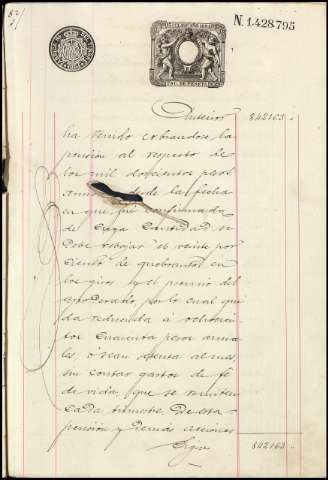 N. 1.428.795
Anterior 842163
ha venido cobrandose la
pensión al respecto de
los mil doscientos pesos
desde la fecha
en que fué confirmada
de cuya cantidad se
debe rebajar el veinte por
ciento de quebrantos en
los giros y el premio del
apoderado, por lo cual que
da reducida á ochocien
tos cuarenta pesos anua
les, ó sean setenta al mes
sin contar gastos de fé
de vida, que se remiten
cada trimestre. De esta
pensión y demás acciones
Sigue 842163